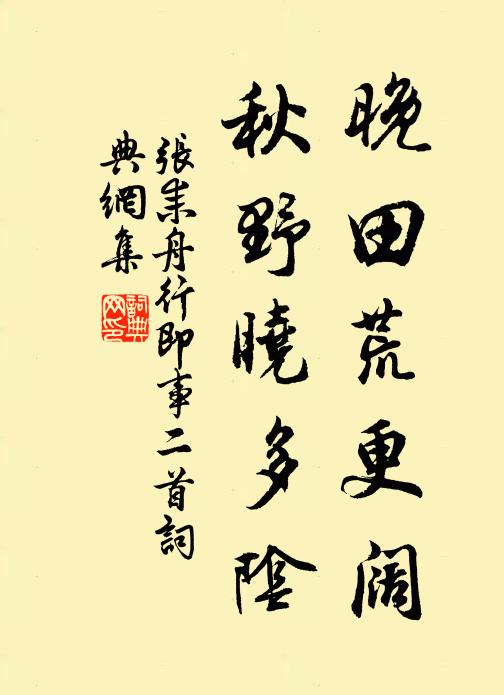 晚田荒更闊
秋野曉多陰
張耒舟行即事二首詞
典網集
詞典
网印